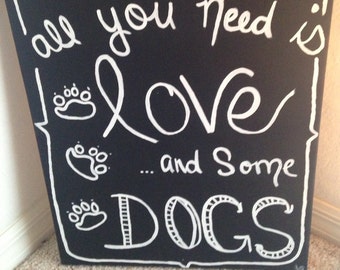 all you need is
love
...and Some
DOGS